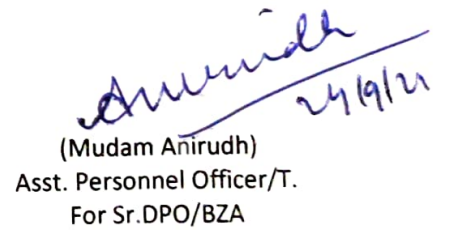 Anirudh
24/9/21
(Mudam Anirudh)
Asst. Personnel Officer/T.
For Sr.DPO/BZA